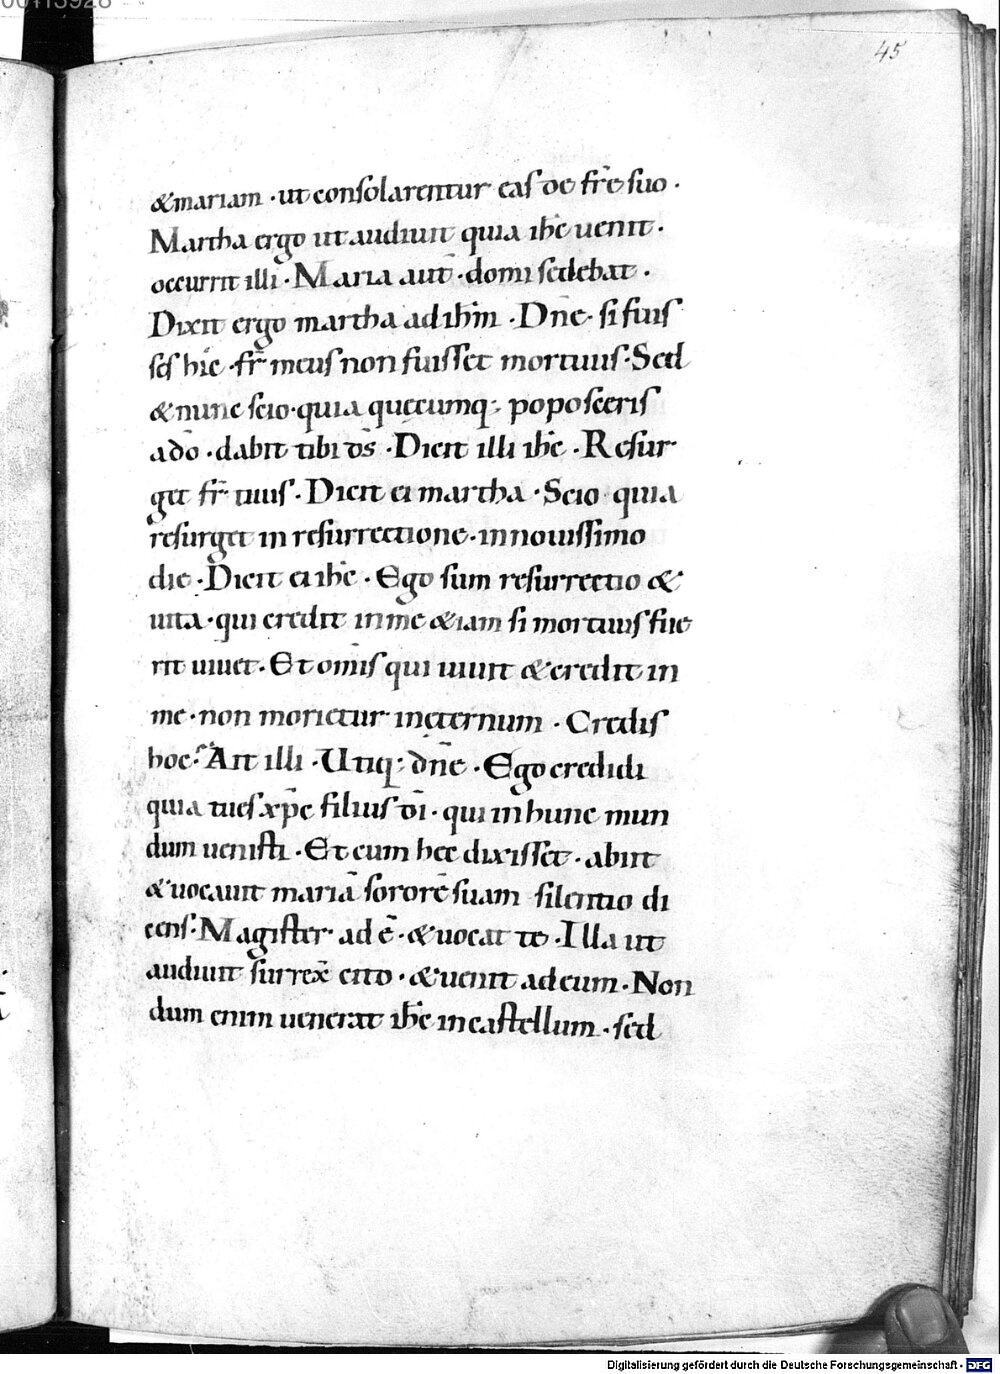 00113928
45
&mariam · ut consolarentur eas de fr̄e suo ·
Martha ergo ut audiuit quia ih̄c uenit ·
occurrit illi · Maria aut̄ · domi sedebat ·
Dixit ergo martha ad ih̄m · Dn̄e · si fuis
ses hic · fr̄ meus non fuisset mortuus · Sed
& nunc scio · quia quęcumq; poposceris
a dō · dabit tibi ds̄ · Dicit illi ih̄c · Resur
get fr̄ tuus · Dicit ei martha · Scio quia
resurget in resurrectione · in nouissimo
die · Dicit ei ih̄c · Ego sum resurrectio &
uita · qui credit in me &iam si mortuus fue
rit uiuet · Et om̄is qui uiuit & credit in
me · non morietur in ęternum · Credis
hoc? Ait illi · Utiq; dn̄e · Ego credidi
quia tu es xp̄c filius dī · qui in hunc mun
dum uenisti · Et cum hęc dixisset · abiit
& uocauit mariā sororē suam silentio di
cens · Magister adē · & uocat te · Illa ut
audiuit surrex̄ cito · & uenit ad eum · Non
dum enim uenerat ih̄c in castellum · sed
Digitalisierung gefördert durch die Deutsche Forschungsgemeinschaft - DFG